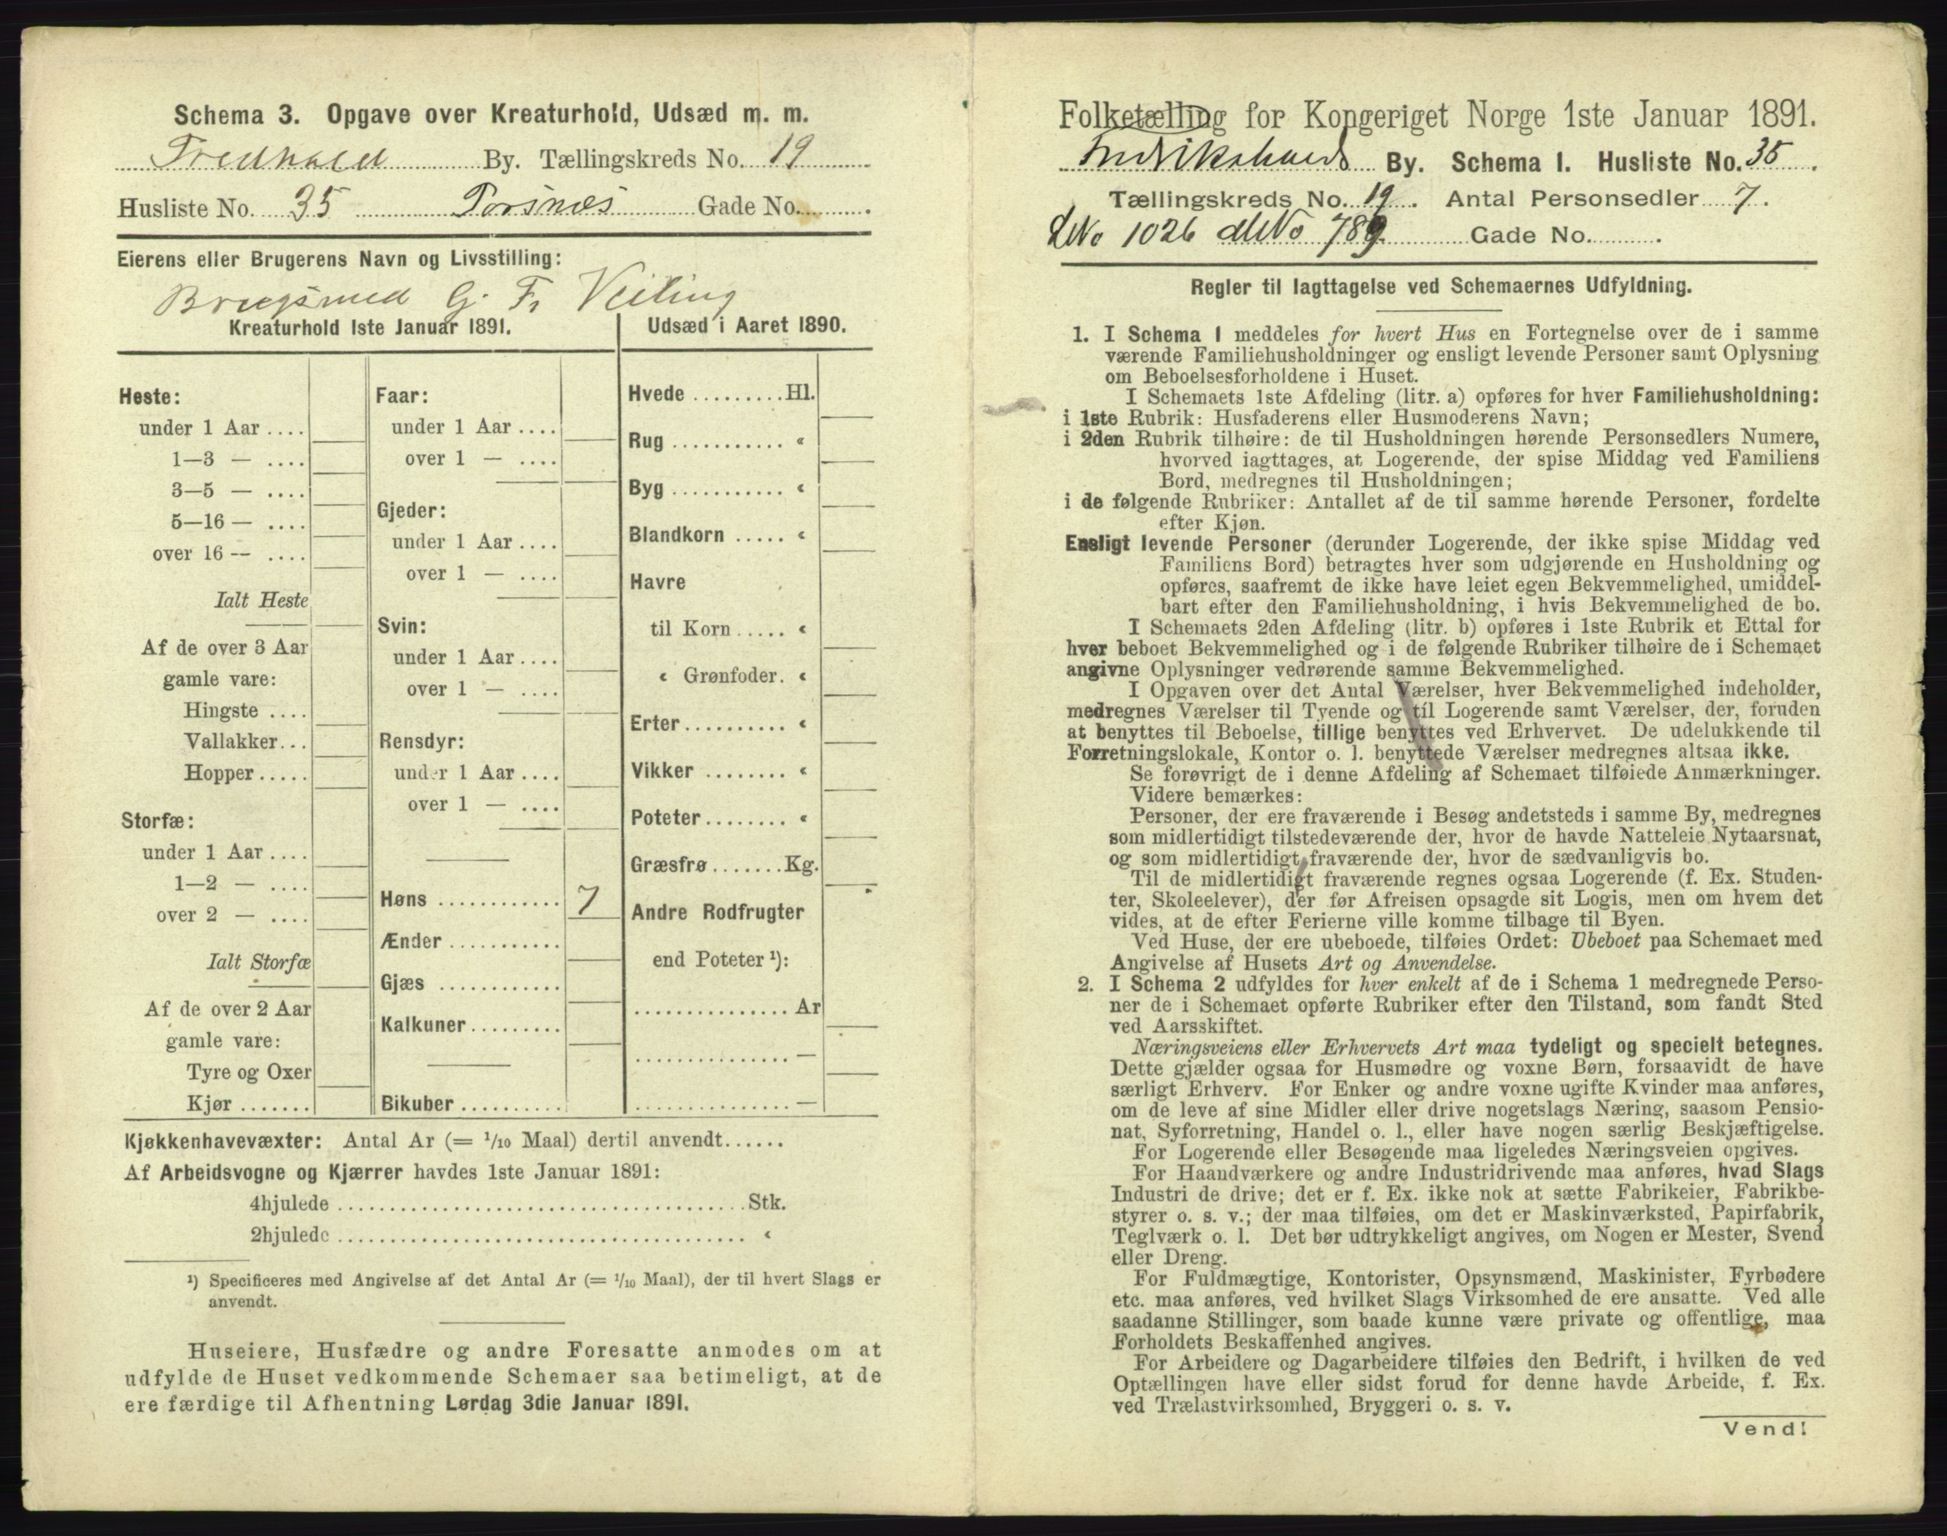 Schema 3. Opgave over Kreaturhold, Udsæd m. m.
Fredhald By. Tællingskreds No. 19
Husliste No. 35 Torsnæs Gade No.
Eierens eller Brugerens Navn og Livsstilling:
Brugsmed G. Fr Veiling
Kreaturhold 1ste Januar 1891.
Udsæd i Aaret 1890.
Heste:
under 1 Aar ....
1—3 — ....
3—5 — ....
5—16 — ....
over 16 — ....
Ialt Heste
Af de over 3 Aar
gamle vare:
Hingste ....
Vallakker...
Hopper.....
Storfæ:
under 1 Aar ....
1—2 — ....
over 2 — ....
Ialt Storfæ
Af de over 2 Aar
gamle vare:
Tyre og Oxer
Kjør .......
Faar:
under 1 Aar ....
over 1 — ....
Gjeder:
under 1 Aar ....
over 1 — ....
Svin:
under 1 Aar ....
over 1 — ....
Rensdyr:
under 1 Aar ....
over 1 — ....
Høns ............ 7
Ænder ...........
Gjæs ............
Kalkuner .........
Bikuber ..........
Hvede .........Hl.
Rug ........... «
Byg ........... «
Blandkorn ..... «
Havre
til Korn ..... «
« Grønfoder. «
Erter ......... «
Vikker ........ «
Poteter ........ «
Græsfrø .......Kg.
Andre Rodfrugter
end Poteter ¹):
............... Ar
............... —
............... —
Kjøkkenhavevæxter: Antal Ar (= 1/10 Maal) dertil anvendt......
Af Arbeidsvogne og Kjærrer havdes 1ste Januar 1891:
4hjulede ....................................... Stk.
2hjulede ....................................... «
¹) Specificeres med Angivelse af det Antal Ar (= 1/10 Maal), der til hvert Slags er
anvendt.
Huseiere, Husfædre og andre Foresatte anmodes om at
udfylde de Huset vedkommende Schemaer saa betimeligt, at de
ere færdige til Afhentning Lørdag 3die Januar 1891.
Folketælling for Kongeriget Norge 1ste Januar 1891.
Fredrikshalds By. Schema I. Husliste No. 35
Tællingskreds No. 19. Antal Personsedler 7.
LNo 1026 MNo 789 Gade No.
Regler til Iagttagelse ved Schemaernes Udfyldning.
1. I Schema 1 meddeles for hvert Hus en Fortegnelse over de i samme
værende Familiehusholdninger og ensligt levende Personer samt Oplysning
om Beboelsesforholdene i Huset.
I Schemaets 1ste Afdeling (litr. a) opføres for hver Familiehusholdning:
i 1ste Rubrik: Husfaderens eller Husmoderens Navn;
i 2den Rubrik tilhøire: de til Husholdningen hørende Personsedlers Numere,
hvorved iagttages, at Logerende, der spise Middag ved Familiens
Bord, medregnes til Husholdningen;
i de følgende Rubriker: Antallet af de til samme hørende Personer, fordelte
efter Kjøn.
Ensligt levende Personer (derunder Logerende, der ikke spise Middag ved
Familiens Bord) betragtes hver som udgjørende en Husholdning og
opføres, saafremt de ikke have leiet egen Bekvemmelighed, umiddel-
bart efter den Familiehusholdning, i hvis Bekvemmelighed de bo.
I Schemaets 2den Afdeling (litr. b) opføres i 1ste Rubrik et Ettal for
hver beboet Bekvemmelighed og i de følgende Rubriker tilhøire de i Schemaet
angivne Oplysninger vedrørende samme Bekvemmelighed.
I Opgaven over det Antal Værelser, hver Bekvemmelighed indeholder,
medregnes Værelser til Tyende og til Logerende samt Værelser, der, foruden
at benyttes til Beboelse, tillige benyttes ved Erhvervet. De udelukkende til
Forretningslokale, Kontor o. l. benyttede Værelser medregnes altsaa ikke.
Se forøvrigt de i denne Afdeling af Schemaet tilføiede Anmærkninger.
Videre bemærkes:
Personer, der ere fraværende i Besøg andetsteds i samme By, medregnes
som midlertidigt tilstedeværende der, hvor de havde Natteleie Nytaarsnat,
og som midlertidigt fraværende der, hvor de sædvanligvis bo.
Til de midlertidigt fraværende regnes ogsaa Logerende (f. Ex. Studen-
ter, Skoleelever), der før Afreisen opsagde sit Logis, men om hvem det
vides, at de efter Ferierne ville komme tilbage til Byen.
Ved Huse, der ere ubeboede, tilføies Ordet: Ubeboet paa Schemaet med
Angivelse af Husets Art og Anvendelse.
2. I Schema 2 udfyldes for hver enkelt af de i Schema 1 medregnede Perso-
ner de i Schemaet opførte Rubriker efter den Tilstand, som fandt Sted
ved Aarsskiftet.
Næringsveiens eller Erhvervets Art maa tydeligt og specielt betegnes.
Dette gjælder ogsaa for Husmødre og voxne Børn, forsaavidt de have
særligt Erhverv. For Enker og andre voxne ugifte Kvinder maa anføres,
om de leve af sine Midler eller drive nogetslags Næring, saasom Pensio-
nat, Syforretning, Handel o. l., eller have nogen særlig Beskjæftigelse.
For Logerende eller Besøgende maa ligeledes Næringsveien opgives.
For Haandværkere og andre Industridrivende maa anføres, hvad Slags
Industri de drive; det er f. Ex. ikke nok at sætte Fabrikeier, Fabrikbe-
styrer o. s. v.; der maa tilføies, om det er Maskinværksted, Papirfabrik,
Teglværk o. l. Det bør udtrykkeligt angives, om Nogen er Mester, Svend
eller Dreng.
For Fuldmægtige, Kontorister, Opsynsmænd, Maskinister, Fyrbødere
etc. maa anføres, ved hvilket Slags Virksomhed de ere ansatte. Ved alle
saadanne Stillinger, som baade kunne være private og offentlige, maa
Forholdets Beskaffenhed angives.
For Arbeidere og Dagarbeidere tilføies den Bedrift, i hvilken de ved
Optællingen have eller sidst forud for denne havde Arbeide, f. Ex.
ved Trælastvirksomhed, Bryggeri o. s. v.
Vend!